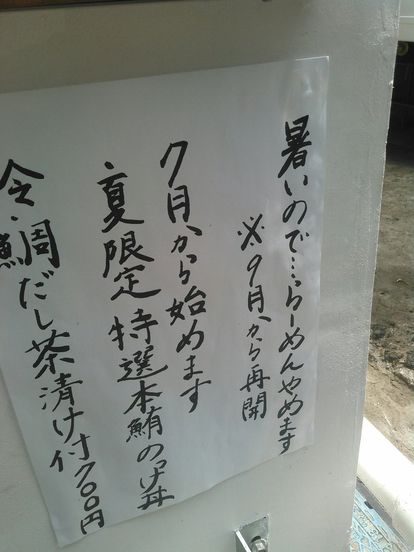 暑いので…らーめんやめます
※9月から再開
7月から始めます
・夏限定特選本鮪のづけ丼
だし茶漬け付700円